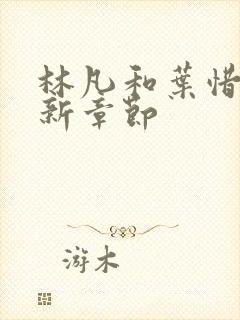 林凡和葉惜
新章節
游木